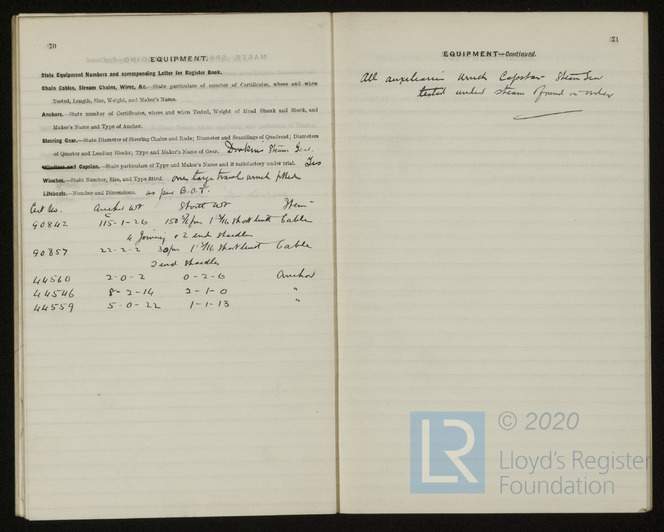 70
EQUIPMENT.
State Equipment Numbers and corresponding Letter for Register Book.
Chain Cables, Stream Chains, Wires, &c.—State particulars of number of Certificates, where and when
Tested, Length, Size, Weight, and Maker's Name.
Anchors.—State number of Certificates, where and when Tested, Weight of Head Shank and Stock, and
Maker's Name and Type of Anchor.
Steering Gear.—State Diameter of Steering Chains and Rods; Diameter and Scantlings of Quadrant; Diameters
of Quarter and Leading Blocks; Type and Maker's Name of Gear. Steam Gear.
Windlass and Capstan.—State particulars of Type and Maker's Name and if satisfactory under trial. Yes
Winches.—State Number, Size, and Type fitted. one large trawl winch fitted
Lifeboats.—Number and Dimensions. as per B.O.T.
Cert No. Anchor Wt Stock Wt Item
90842 115-1-26 150 short link Cable
4 Joining & 2 end shackles
90857 22-2-2 30 short link Cable
2 end shackles
44560 2-0-2 0-2-6 Anchor
44546 8-2-14 2-1-0 "
44559 5-0-22 1-1-13 "
71
EQUIPMENT—Continued.
All auxiliaries winch Capstan Steam Gear
tested under steam & found in order
LR
© 2020
Lloyd's Register
Foundation